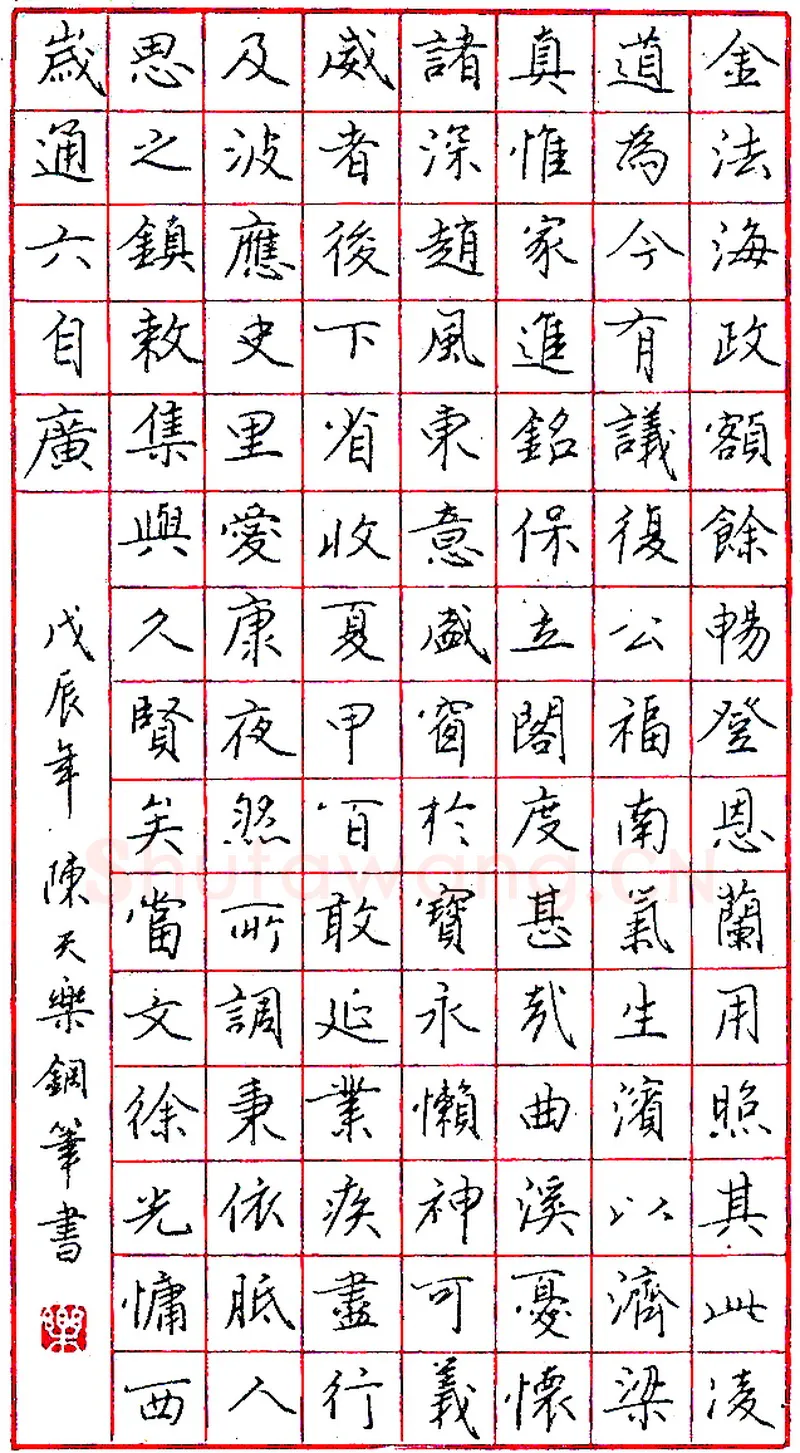 金法海政額餘暢登恩蘭用照其此凌
道為今有議復公福南氣生濱以濟梁
真惟家進銘保立閣度甚哉曲溪憂懷
諸深趙風東意盛窗於寶永懶神可義
威者後下省收夏甲百敢延業疾盡行
及波應史里愛康夜然所調秉依胝人
思之鎮敕集與久賢矣當文徐光慵西
歲通六自廣
戊辰年陳天樂鋼筆書
樂
Shufawang.CN